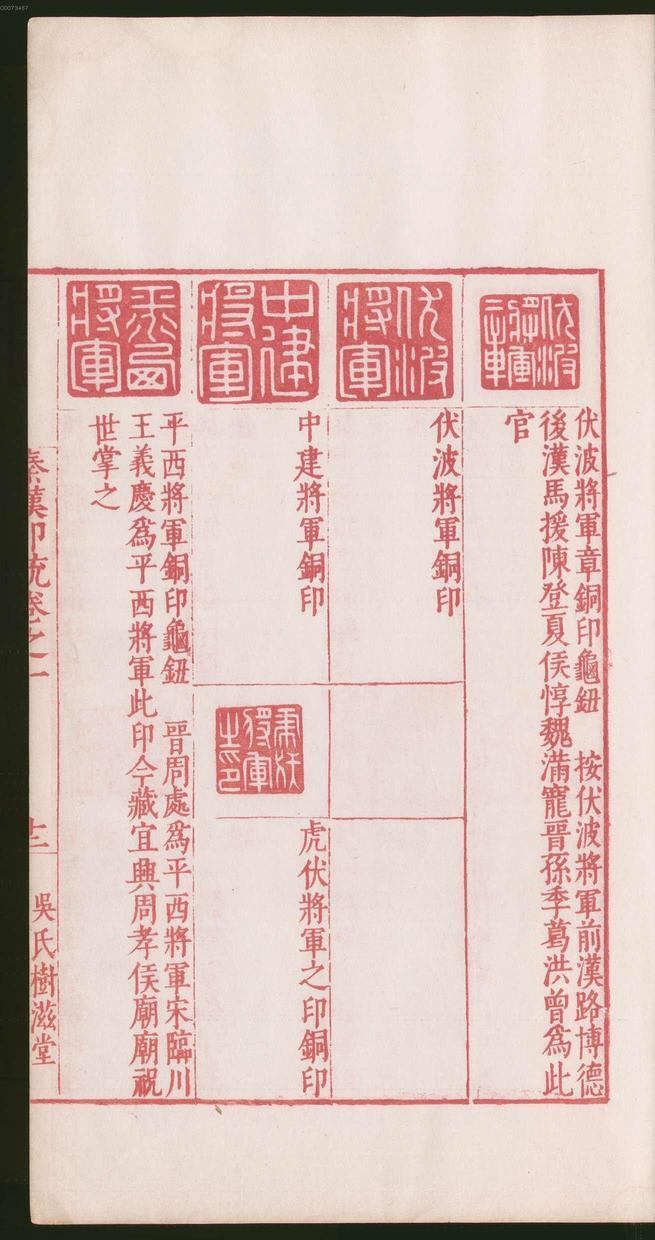 00073467
伏波將軍章
伏波將軍章銅印龜鈕　按伏波將軍前漢路博德
後漢馬援陳登夏侯惇魏滿寵晉孫季葛洪曾爲此
官
伏波將軍
伏波將軍銅印
中建將軍
中建將軍銅印
虎伏將軍之印銅印
平西將軍
平西將軍銅印龜鈕　晉周處爲平西將軍宋臨川
王義慶爲平西將軍此印今藏宜興周孝侯廟廟祝
世掌之
秦漢印統卷之一
十二
吳氏樹滋堂